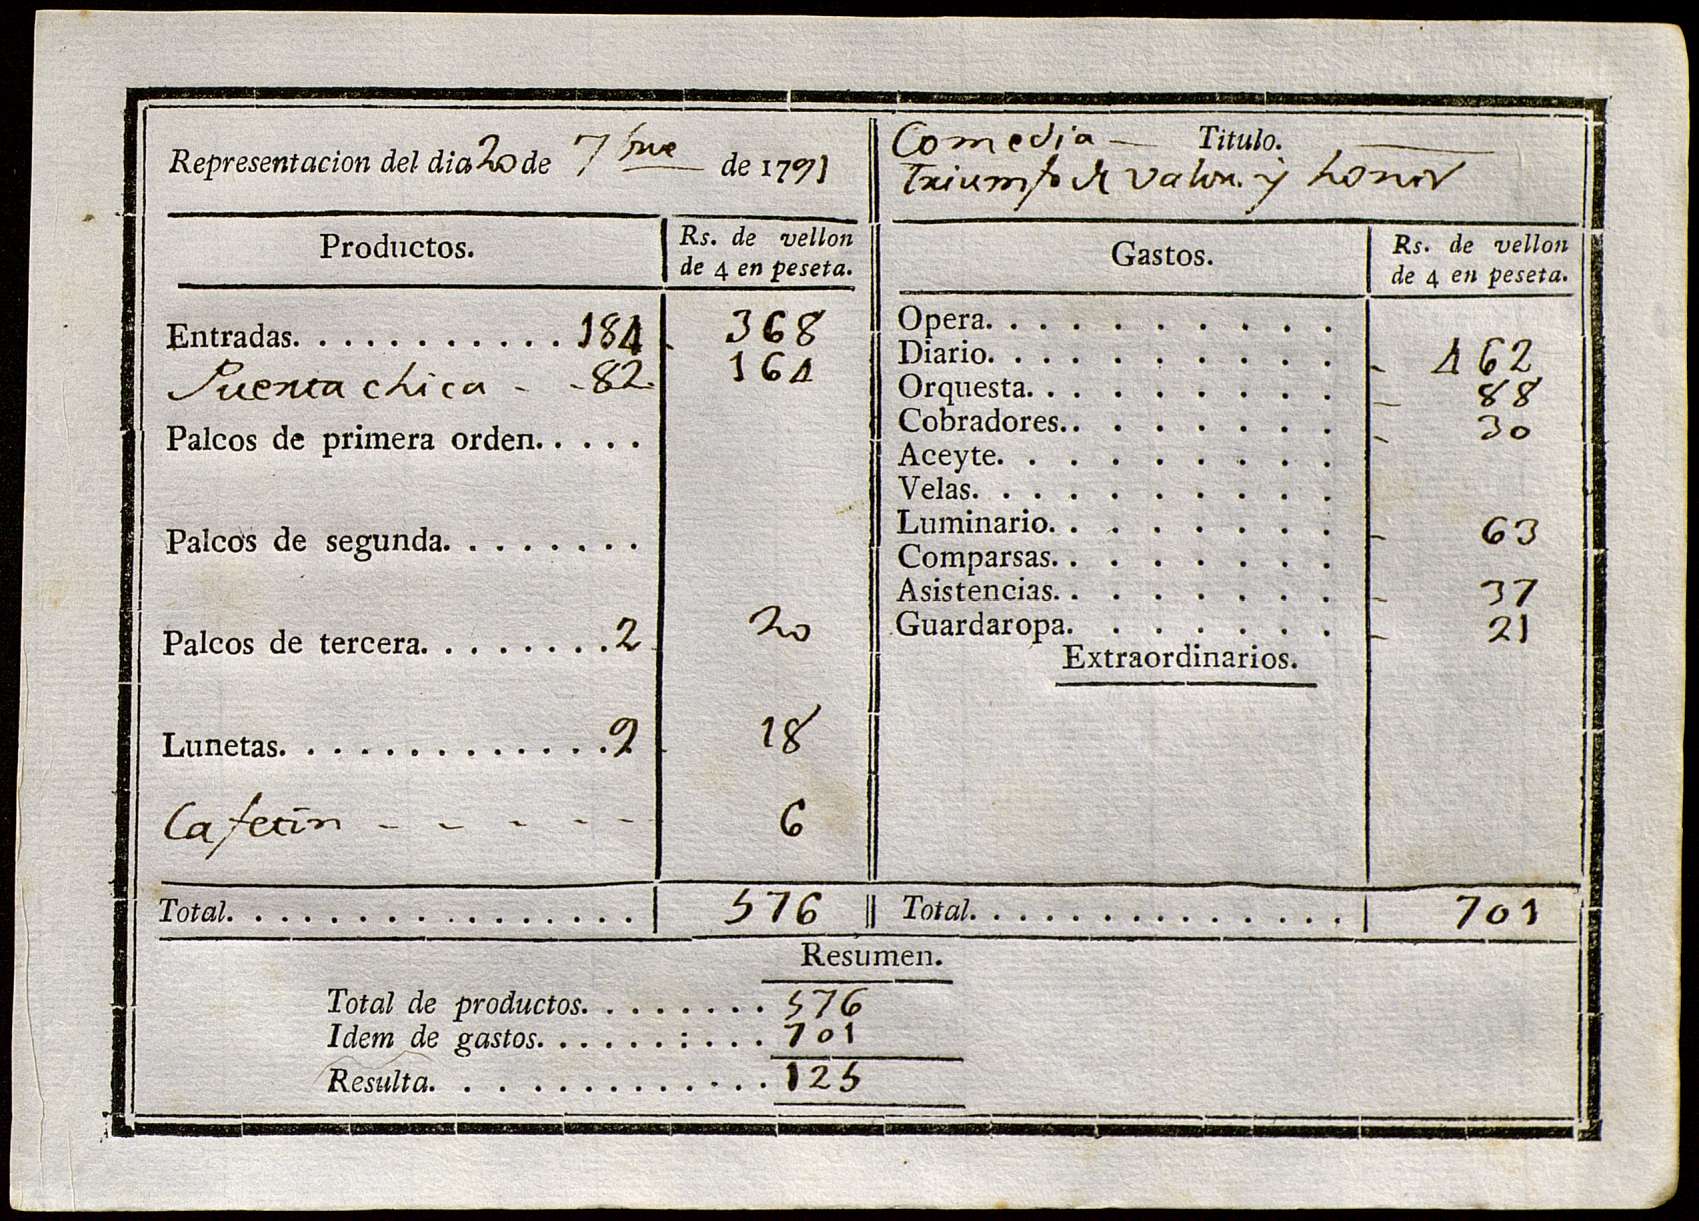 Representacion del dia 20 de 7bre de 1791
Comedia — Titulo.
Triumfo de valor. y honor
Productos. Rs. de vellon de 4 en peseta.
Entradas. . . . . . . . . . . 184 368
Puerta chica - - 82 164
Palcos de primera orden. . . . .
Palcos de segunda. . . . . . . .
Palcos de tercera. . . . . . . . 2 20
Lunetas. . . . . . . . . . . . . 9 18
Cafetin - - - - - 6
Total. . . . . . . . . . . . . . . . 576
Gastos. Rs. de vellon de 4 en peseta.
Opera. . . . . . . . . .
Diario. . . . . . . . . . 462
Orquesta. . . . . . . . . 88
Cobradores. . . . . . . . 30
Aceyte. . . . . . . . .
Velas. . . . . . . . . .
Luminario. . . . . . . . 63
Comparsas. . . . . . . .
Asistencias. . . . . . . . 37
Guardaropa. . . . . . . 21
Extraordinarios.
Total. . . . . . . . . . . . . . . 701
Resumen.
Total de productos. . . . . . . . 576
Idem de gastos. . . . . . : . . . 701
Resulta. . . . . . . . . . . . . 125